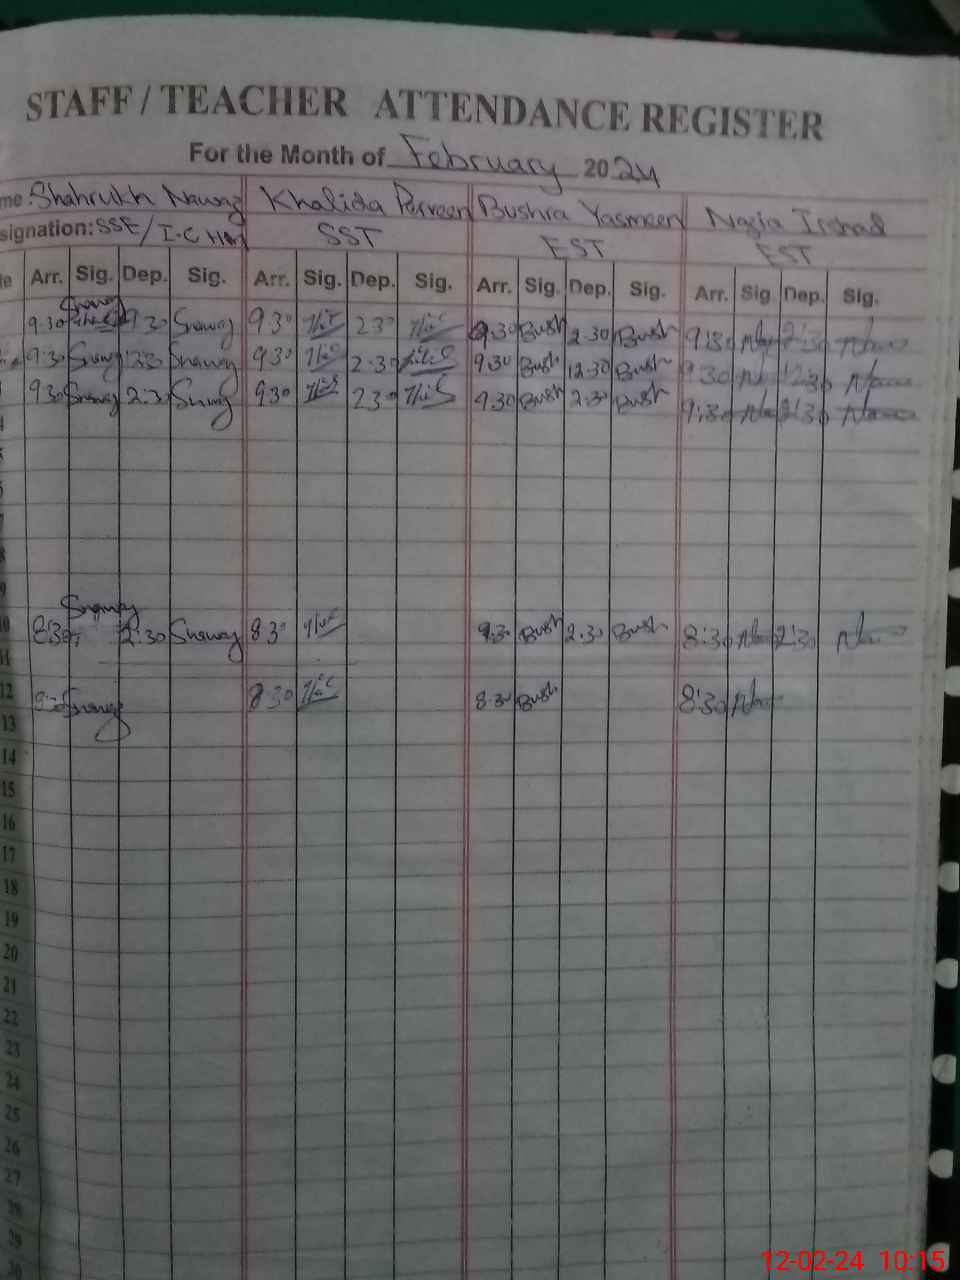 STAFF / TEACHER ATTENDANCE REGISTER
For the Month of February 2024
me: Shahrukh Nawaz Khalida Perveen Bushra Yasmeen Nazia Irshad
signation: SSE / I-C HM SST EST EST
te Arr. Sig. Dep. Sig. Arr. Sig. Dep. Sig. Arr. Sig. Dep. Sig. Arr. Sig. Dep. Sig.
9:30 2:30 Snawaz 9 30 2 30 9.30 Bush 2.30 Bush 9:30 2:30
9:30 Snawaz 12:30 Snawaz 9 30 2.30 9.30 Bush 12.30 Bush 9:30 12:30
9:30 Snawaz 2:30 Snawaz 9 30 2 30 9.30 Bush 2.30 Bush 9:30 2:30
4
5
6
7
8
9
10 8:30 Snawaz 2:30 Snawaz 8 30 9.30 Bush 2.30 Bush 8:30 2:30
11
12 8:30 Snawaz 8 30 8.30 Bush 8:30
13
14
15
16
17
18
19
20
21
22
23
24
25
26
27
28
29
30
12-02-24 10:15